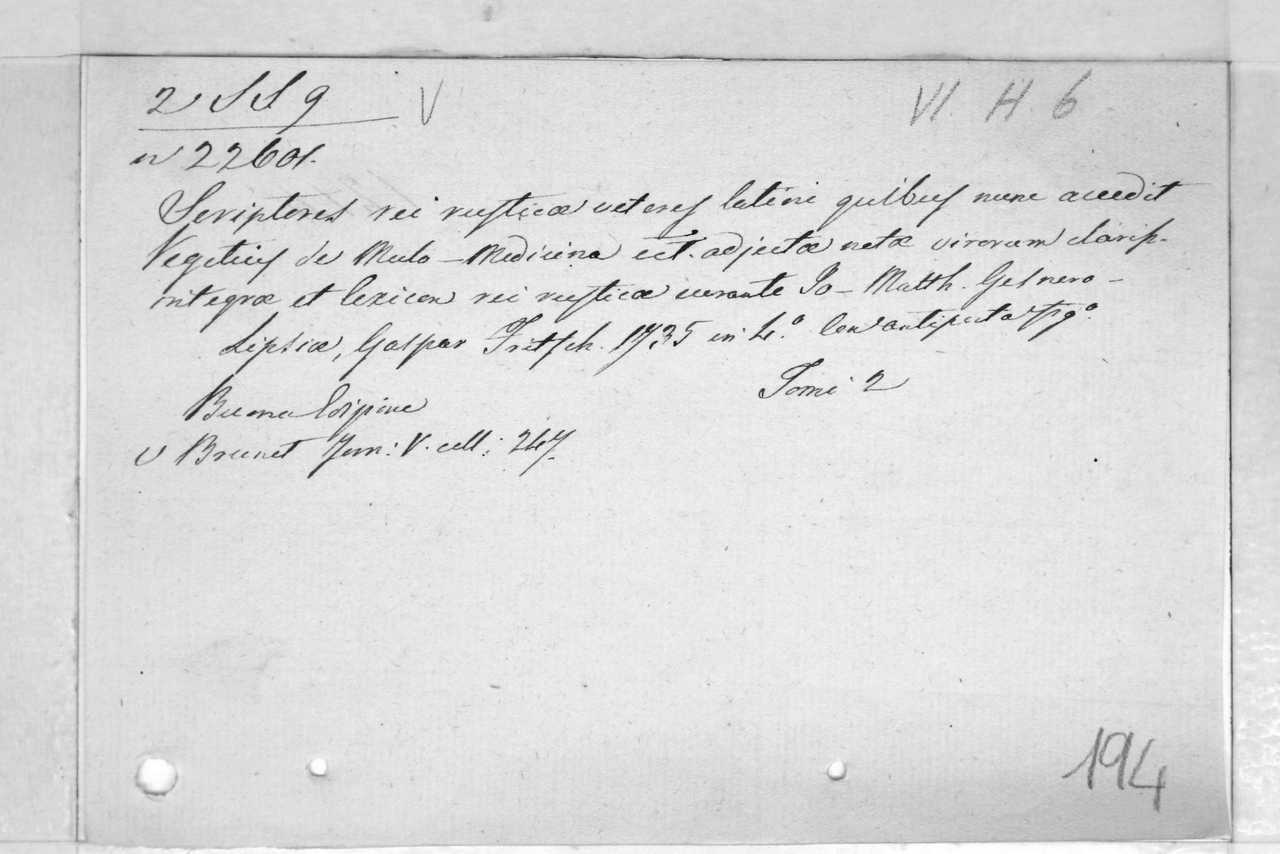 2 S S 9 V VI. H. 6
nº 22601.
Scriptores rei rusticæ veteres latini quibus nunc accedit
Vegetius de Mulo-Medicina ect. adjectæ notæ virorum clariss.
integræ et lexicon rei rusticæ curante Jo- Matth. Gesnero-
Lipsiæ, Gaspar Fritsch. 1735 in 4.º Con antiporta
Tomi 2
Buona Edizione
V Brunet Tom: V. coll: 247.
194